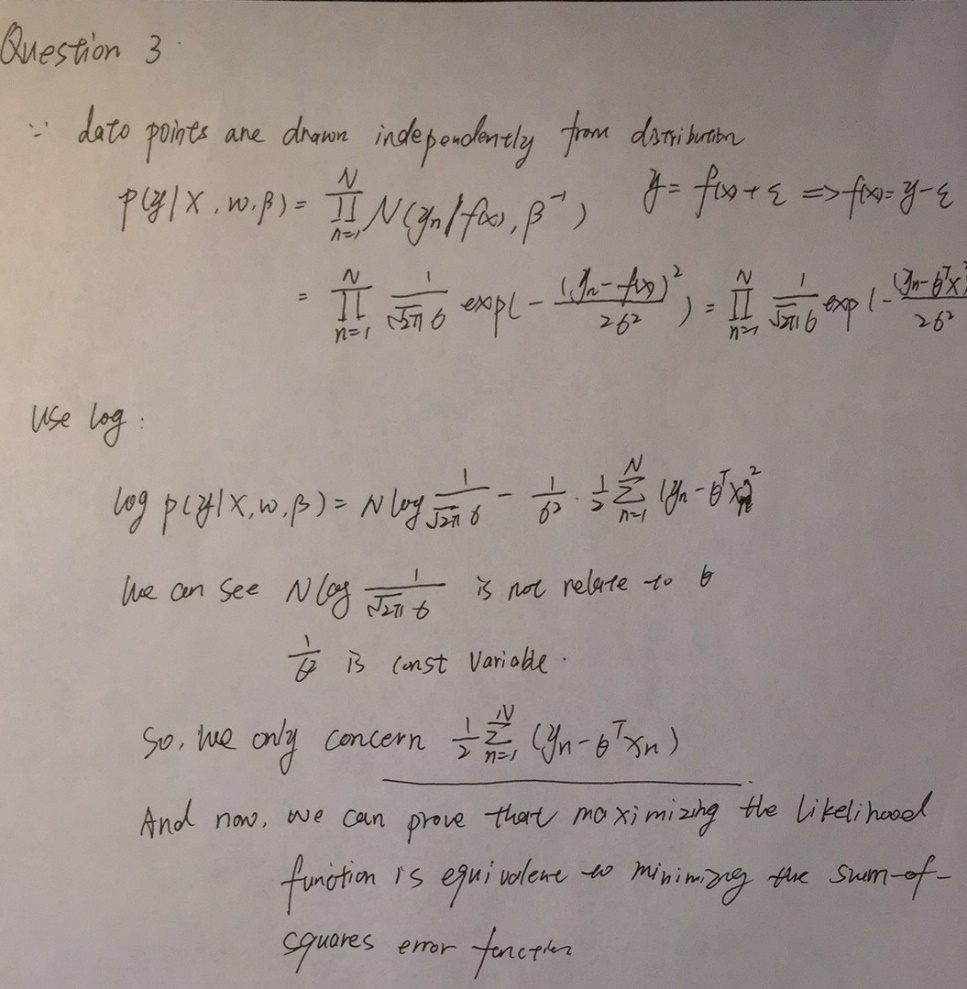 Question 3.
∵ data points are drawn independently from distribution
p(y|X, w, β) = ∏_{n=1}^{N} N(yn | f(x), β⁻¹)    y = f(x) + ε => f(x) = y - ε
= ∏_{n=1}^{N} 1/(√2π 6) exp(- (yn - f(x))²/(26²)) = ∏_{n=1}^{N} 1/(√2π 6) exp(- (yn - θᵀx)/(26²)
Use log :
log p(y|X, w, β) = N log 1/(√2π 6) - 1/6² · 1/2 ∑_{n=1}^{N} (yn - θᵀxn)²
We can see N log 1/(√2π 6) is not relate to θ
1/6² is const variable .
So, we only concern 1/2 ∑_{n=1}^{N} (yn - θᵀxn)
And now, we can prove that maximizing the likelihood
function is equivalent to minimizing the sum-of-
squares error function